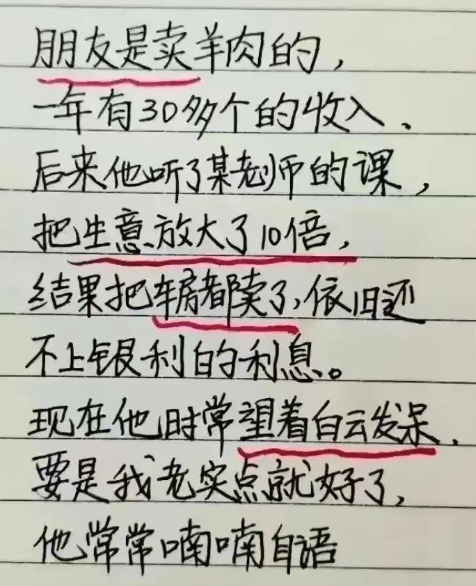 朋友是卖羊肉的，
一年有30多个的收入、
后来他听了某老师的课，
把生意放大了10倍，
结果把车房都卖了,依旧还
不上银利的利息。
现在他时常望着白云发呆.
要是我老实点就好了，
他常常喃喃自语